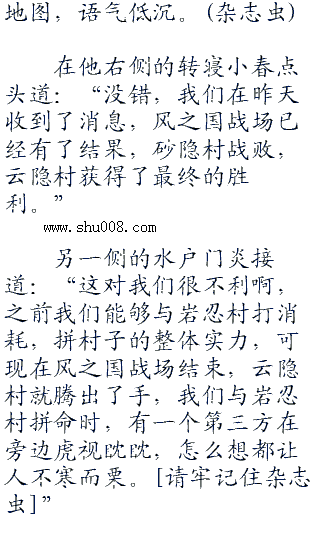 地图，语气低沉。(杂志虫)
在他右侧的转寝小春点
头道：“没错，我们在昨天
收到了消息，风之国战场已
经有了结果，砂隐村战败，
云隐村获得了最终的胜
利。”
www.shu008.com
另一侧的水户门炎接
道：“这对我们很不利啊，
之前我们能够与岩忍村打消
耗，拼村子的整体实力，可
现在风之国战场结束，云隐
村就腾出了手，我们与岩忍
村拼命时，有一个第三方在
旁边虎视眈眈，怎么想都让
人不寒而栗。[请牢记住杂志
虫]”